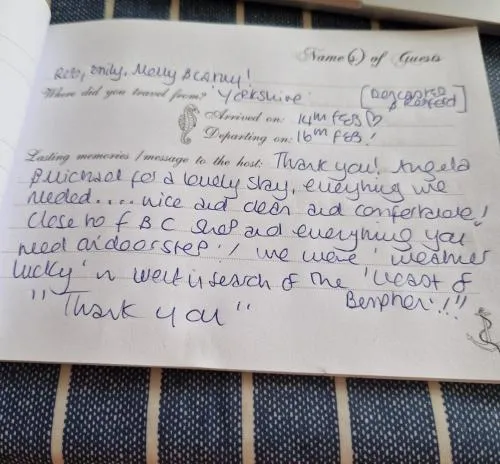 Name(s) of Guests
Rob, Emily, Molly & Canny!
Where did you travel from? 'Yorkshire' [Doncaster & Retford]
Arrived on: 14th FEB ♡
Departing on: 16th FEB!
Lasting memories / message to the host: Thank you! Angela
& Michael for a lovely stay, everything we
needed.... nice and clean and comfortable!
Close to F B C shop and everything you
need on doorstep! we were 'weather
lucky' n went in search of the 'Beast of
"Thank you" !!!